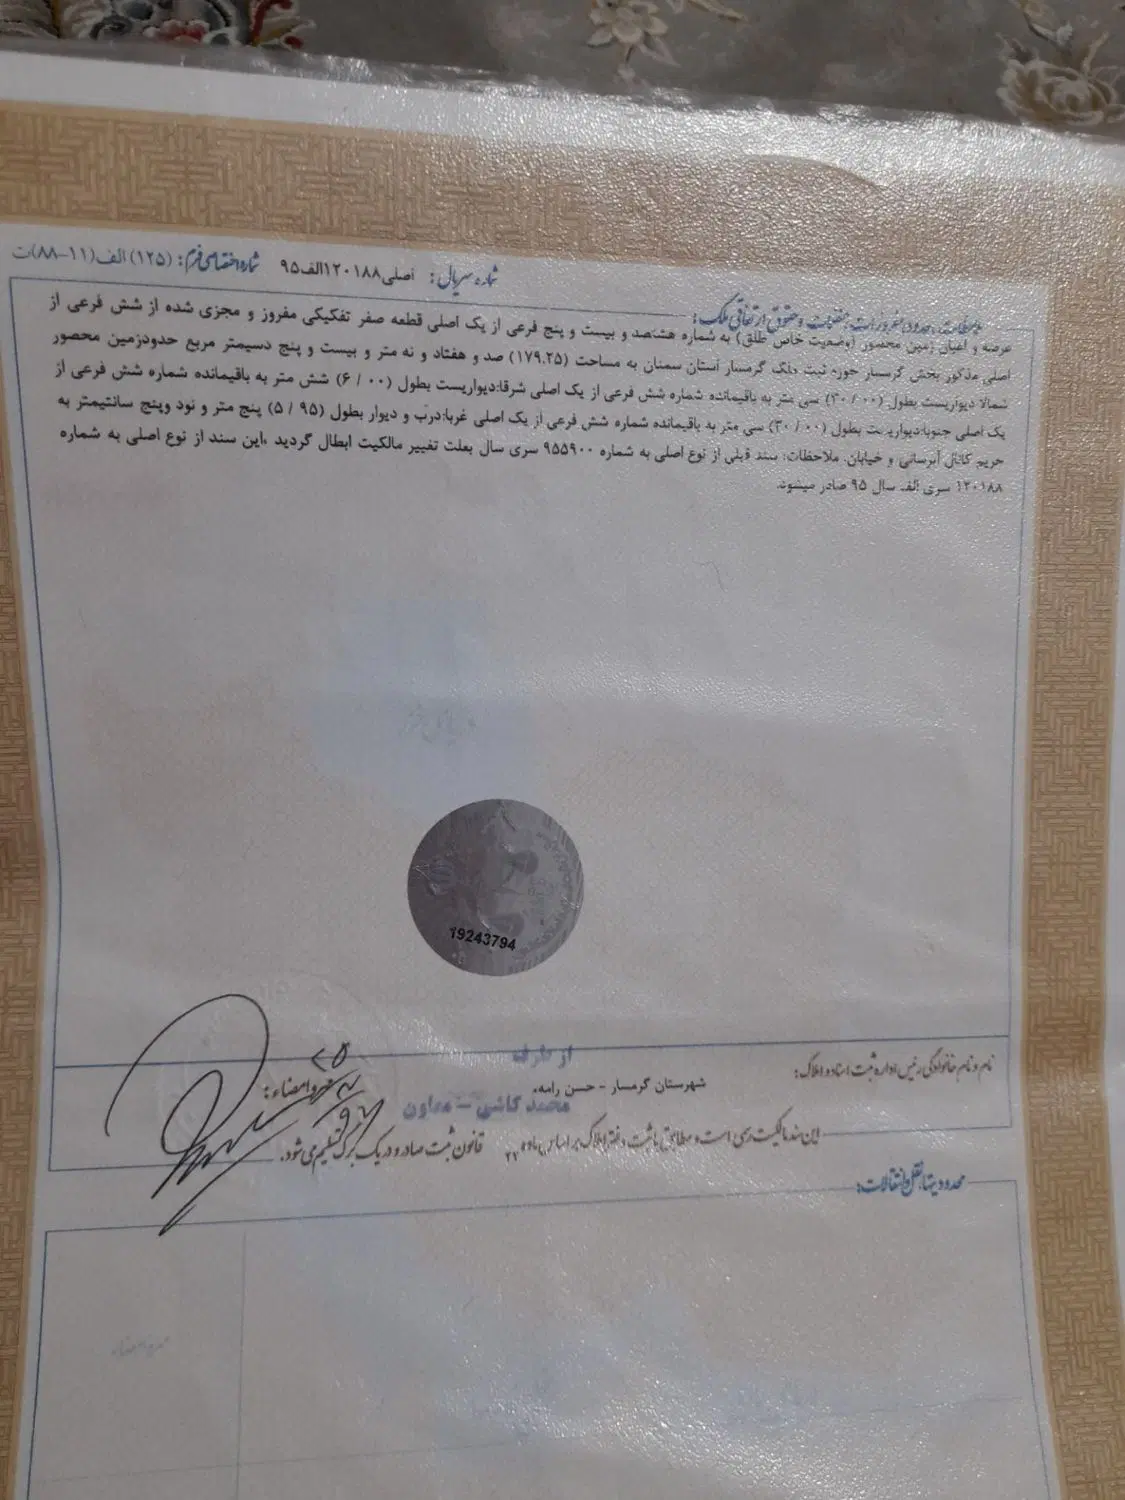 شماره سریال: اصلی۱۲۰۱۸۸الف۹۵ شماره اختصاصی فرم: (۱۲۵) الف(۱۱-۸۸)ت
حقوق ارتفاقی ملک:
عرصه و اعیان زمین محصور (وضعیت خاص طلق) به شماره هشتصد و بیست و پنج فرعی از یک اصلی قطعه صفر تفکیکی مفروز و مجزی شده از شش فرعی از
اصلی مذکور بخش گرمسار حوزه ثبت ملک گرمسار استان سمنان به مساحت (۱۷۹.۲۵) صد و هفتاد و نه متر و بیست و پنج دسیمتر مربع حدودزمین محصور
شمالا دیواریست بطول (۳۰/۰۰) سی متر به باقیمانده شماره شش فرعی از یک اصلی شرقا:دیواریست بطول (۶/۰۰) شش متر به باقیمانده شماره شش فرعی از
یک اصلی جنوبا:دیواریست بطول (۳۰/۰۰) سی متر به باقیمانده شماره شش فرعی از یک اصلی غربا:درب و دیوار بطول (۵/۹۵) پنج متر و نود وپنج سانتیمتر به
حریم کانال آبرسانی و خیابان. ملاحظات: سند قبلی از نوع اصلی به شماره ۹۵۵۹۰۰ سری سال بعلت تغییر مالکیت ابطال گردید ،این سند از نوع اصلی به شماره
۱۲۰۱۸۸ سری الف سال ۹۵ صادر میشود.
19243794
از طرف
نام و نام خانوادگی رئیس اداره ثبت اسناد و املاک:
شهرستان گرمسار - حسن رامه.
مهر و امضاء:
محمد کاشی - معاون
این سند مالکیت رسمی است و مطابق با ثبت دفتر املاک بر اساس ماده ۲۲ قانون ثبت صادر و در یک برگ تسلیم می شود.
محدودیتها، نقل و انتقالات: